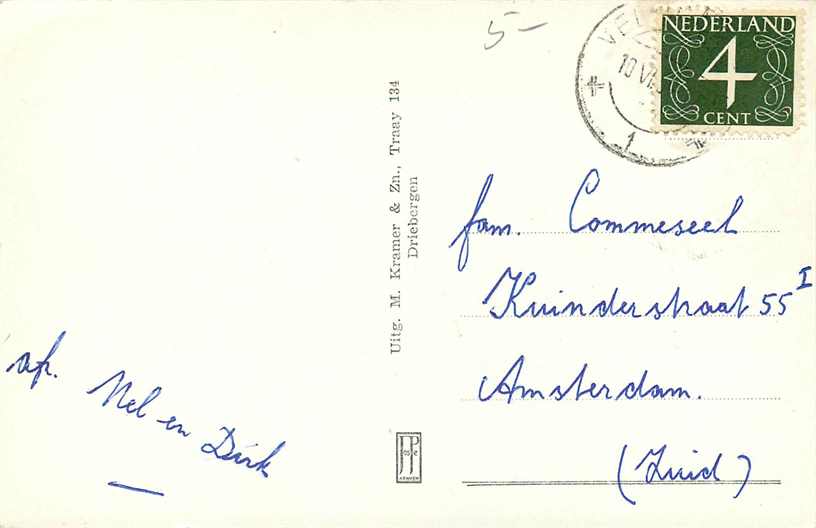 5-
NEDERLAND
4
CENT
10 VI
1
Uitg. M. Kramer & Zn., Traay 134
Driebergen
fam. Commeseel
Kuinderstraat 55 I
Amsterdam.
(Zuid)
afz. Nel en Dirk